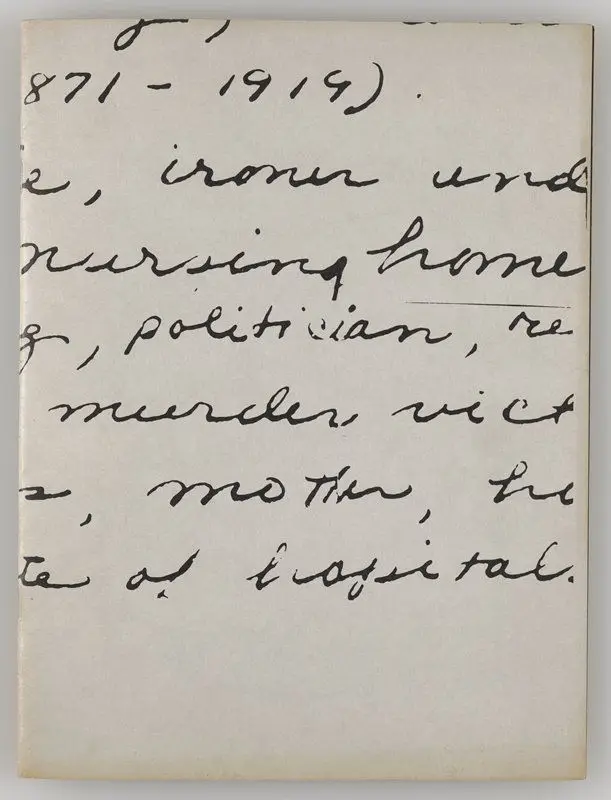 871 - 1919).
e, ironer und
nursing home
g, politician, re
murder vict
s, mother, he
te of hospital.